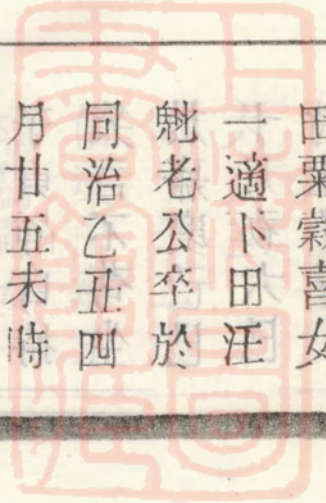 田粟彙喜女
一適卜田汪
魁老公卒於
同治乙丑四
月廿五未時